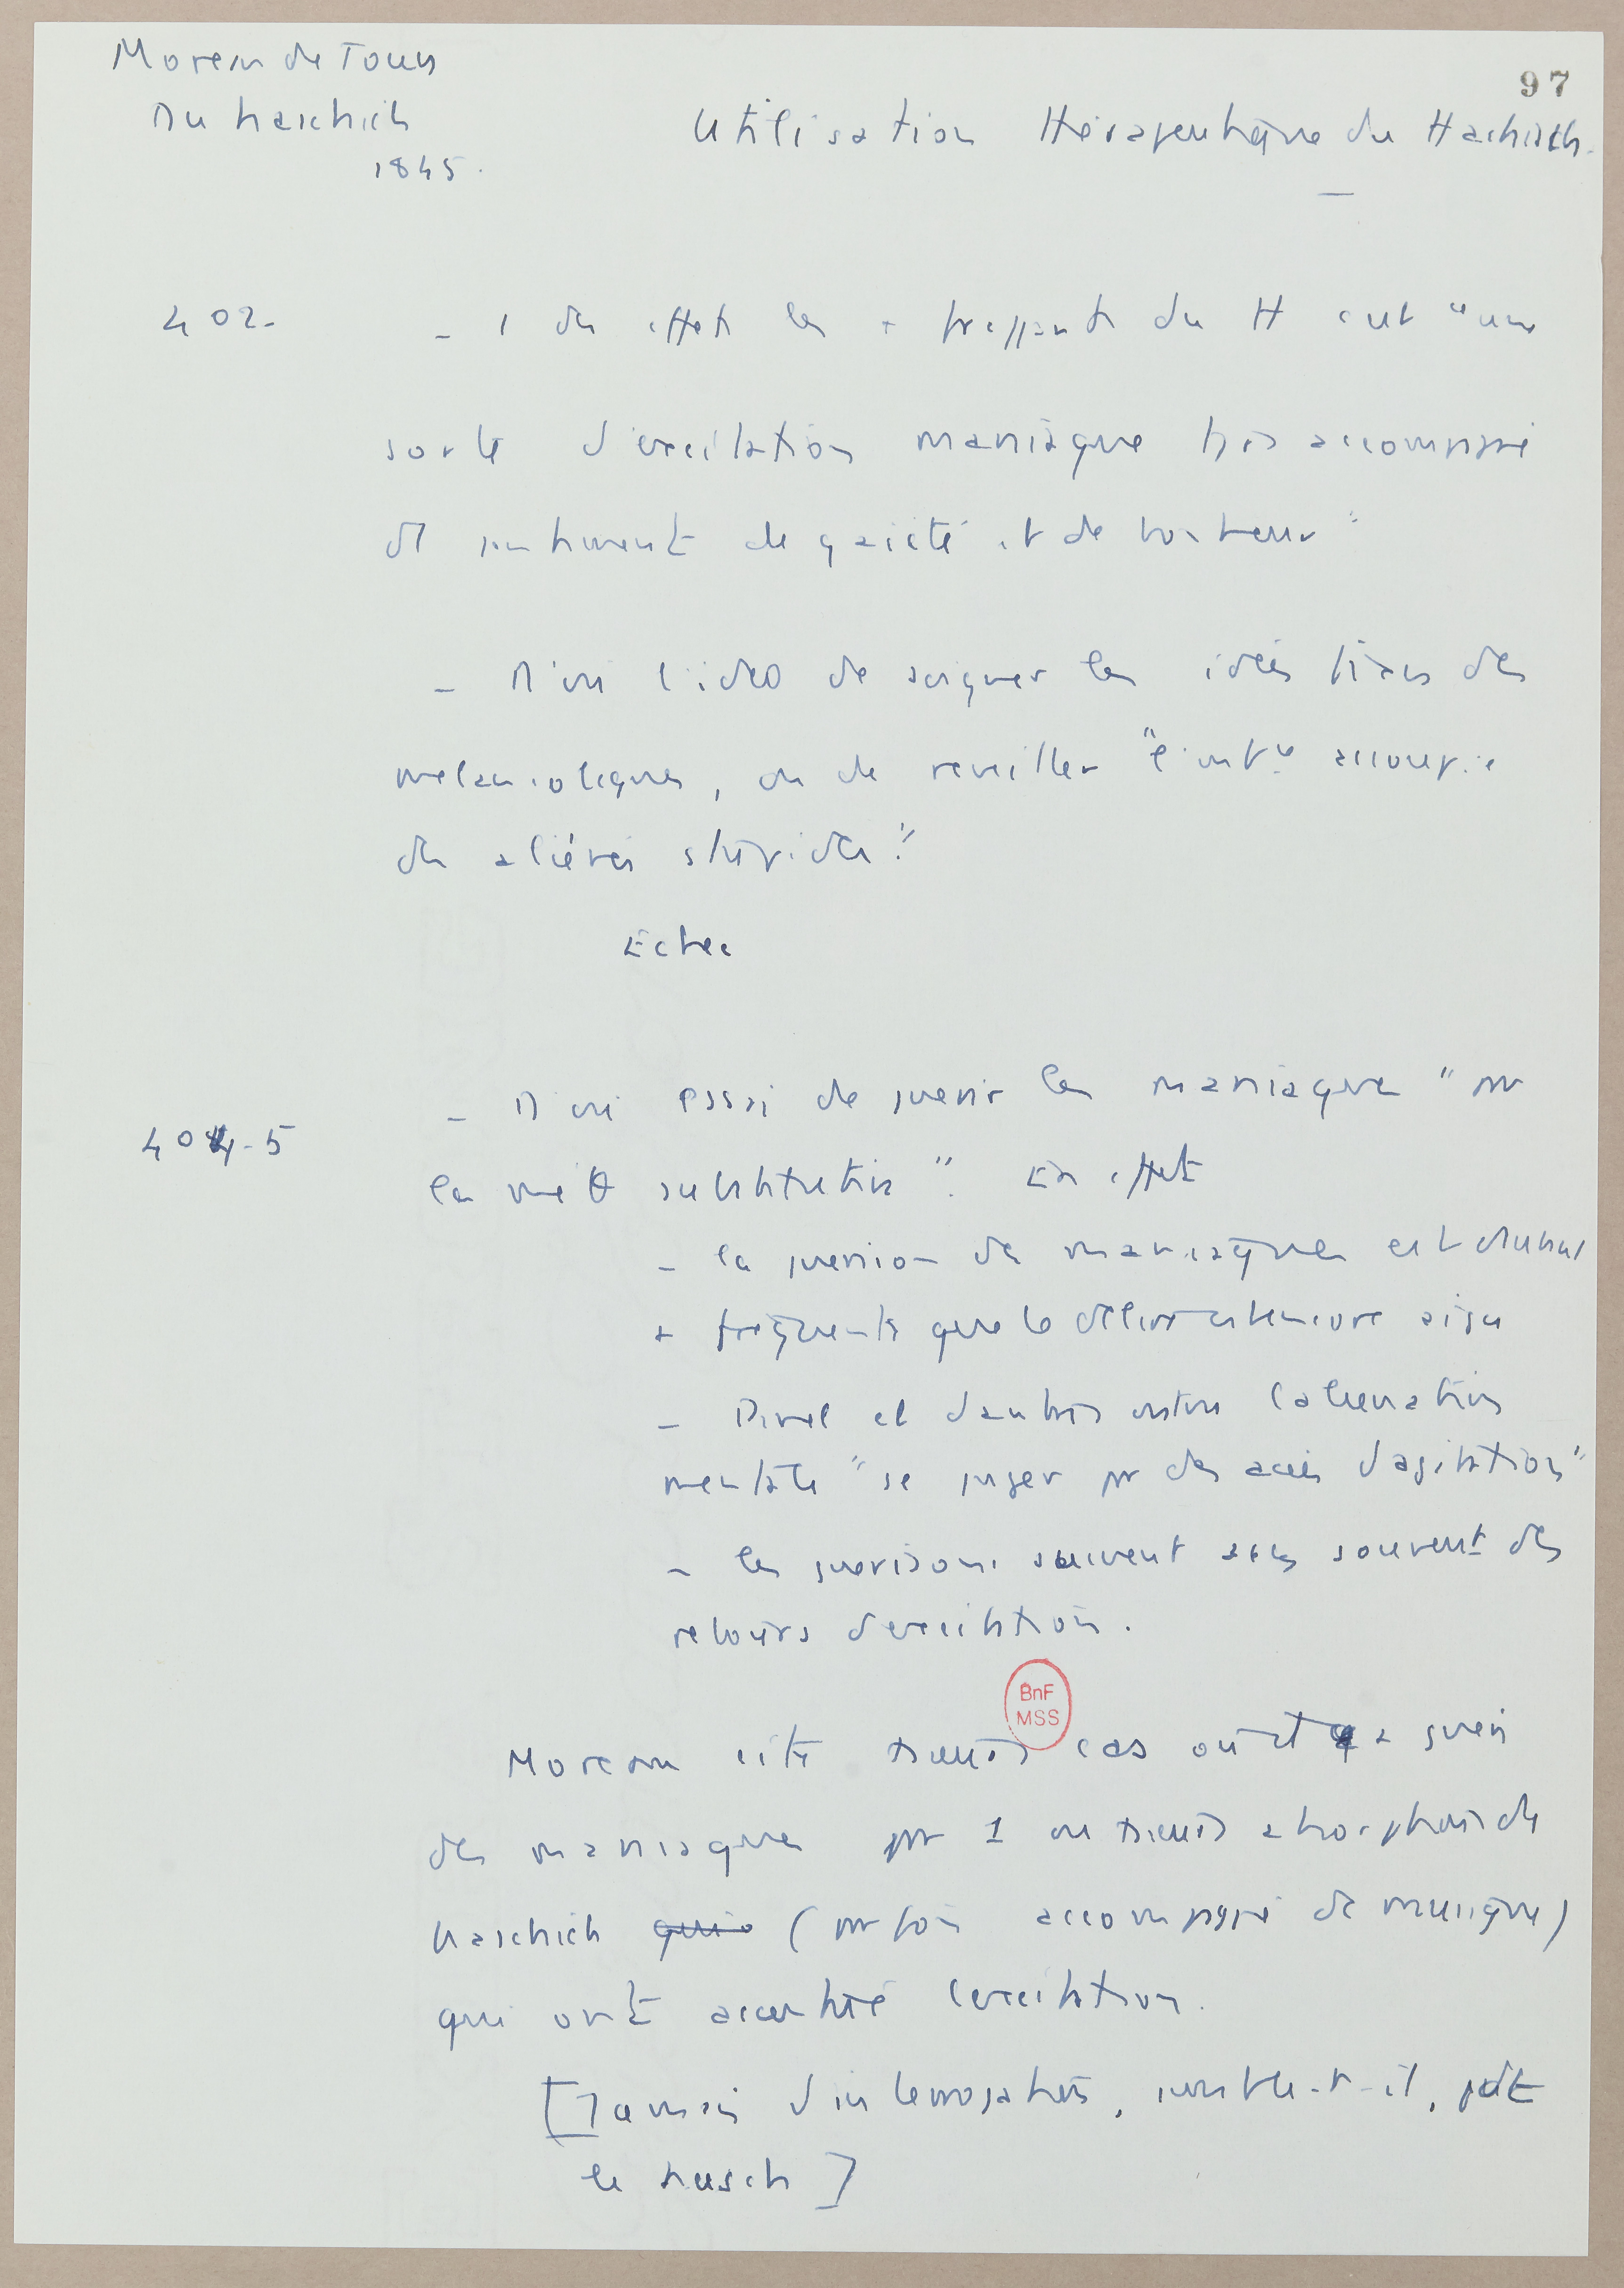 Moreau de Tours
Du haschich
1845.
97
Utilisation thérapeutique du Hachisch.
402-
- 1 des effets les + frappants du H c'est "une
sorte d'excitation maniaque très accompagné
de sentiment de gaieté et de bonheur"
- D'où l'idée de soigner les idées fixes des
mélancoliques, ou de réveiller "l'int^ce assoupie
des aliénés stupides".
Echec
404-5
- D'où essai de guérir les maniaques "pr
la méθ substitution". En effet
- la guérison des maniaques est
+ fréquente que le délire est encore aigu
- Pinel et d'autres ont vu l'aliénation
mentale "se juger pr des accès d'agitation"
- les guérisons suivent assez souvent des
retours d'excitation.
BnF
MSS
Moreau cite cas où il a guéri
des maniaques pr 1 ou absorptions de
haschich qui (parfois accompagné de musique)
qui ont accentué l'excitation.
[Jamais d'interrogatoire, semble-t-il, pdt
le hasch]